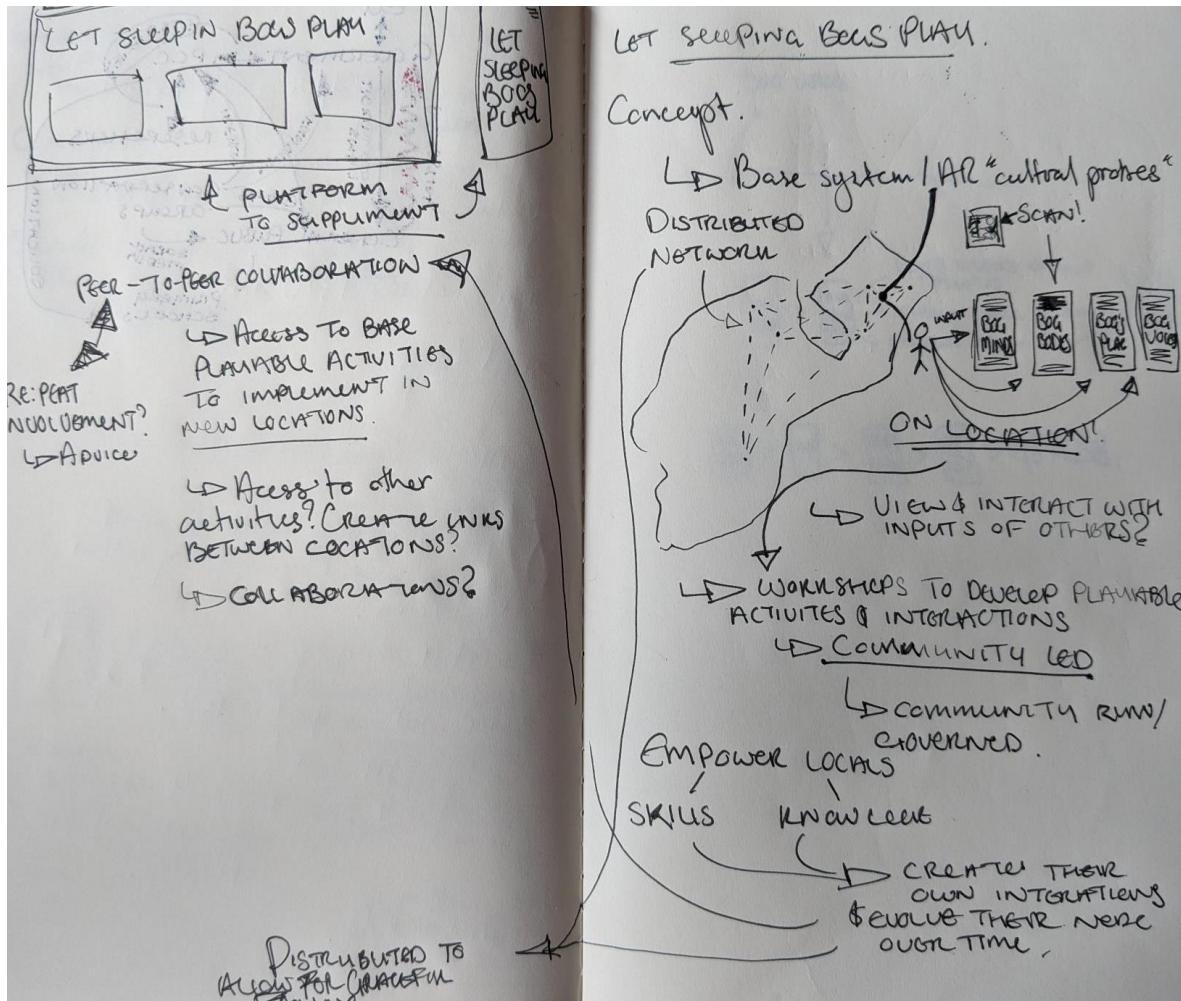 LET SLEEPIN BOGS PLAY
LET
SLEEPING
BOGS
PLAY
PLATFORM
TO SUPPLIMENT
PEER-TO-PEER COLLABORATION
↳ ACCESS TO BASE
PLAYABLE ACTIVITIES
TO IMPLEMENT IN
NEW LOCATIONS.
RE:PEAT
INVOLVEMENT?
↳ ADVICE
↳ Acess to other
activities? CREATE LINKS
BETWEEN LOCATIONS?
↳ COLLABORATIONS?
DISTRIBUTED TO
ALLOW FOR GRACEFUL
LET SLEEPING BOGS PLAY.
Concept.
↳ Base system / AR "cultural probes"
DISTRIBUTED
NETWORK
SCAN!
INPUT
BOG
MINDS
BOG
BODIES
BOG'S
PLAY
BOG
VOICES
ON LOCATION!
↳ VIEW & INTERACT WITH
INPUTS OF OTHERS?
↳ WORKSHOPS TO DEVELOP PLAYABLE
ACTIVITES & INTERACTIONS
↳ COMMUNITY LED
↳ COMMUNITY RUN/
GOVERNED.
EMPOWER LOCALS
SKILLS KNOWLEDGE
CREATE THEIR
OWN INTERATIONS
& EVOLVE THEIR NODE
OVER TIME.